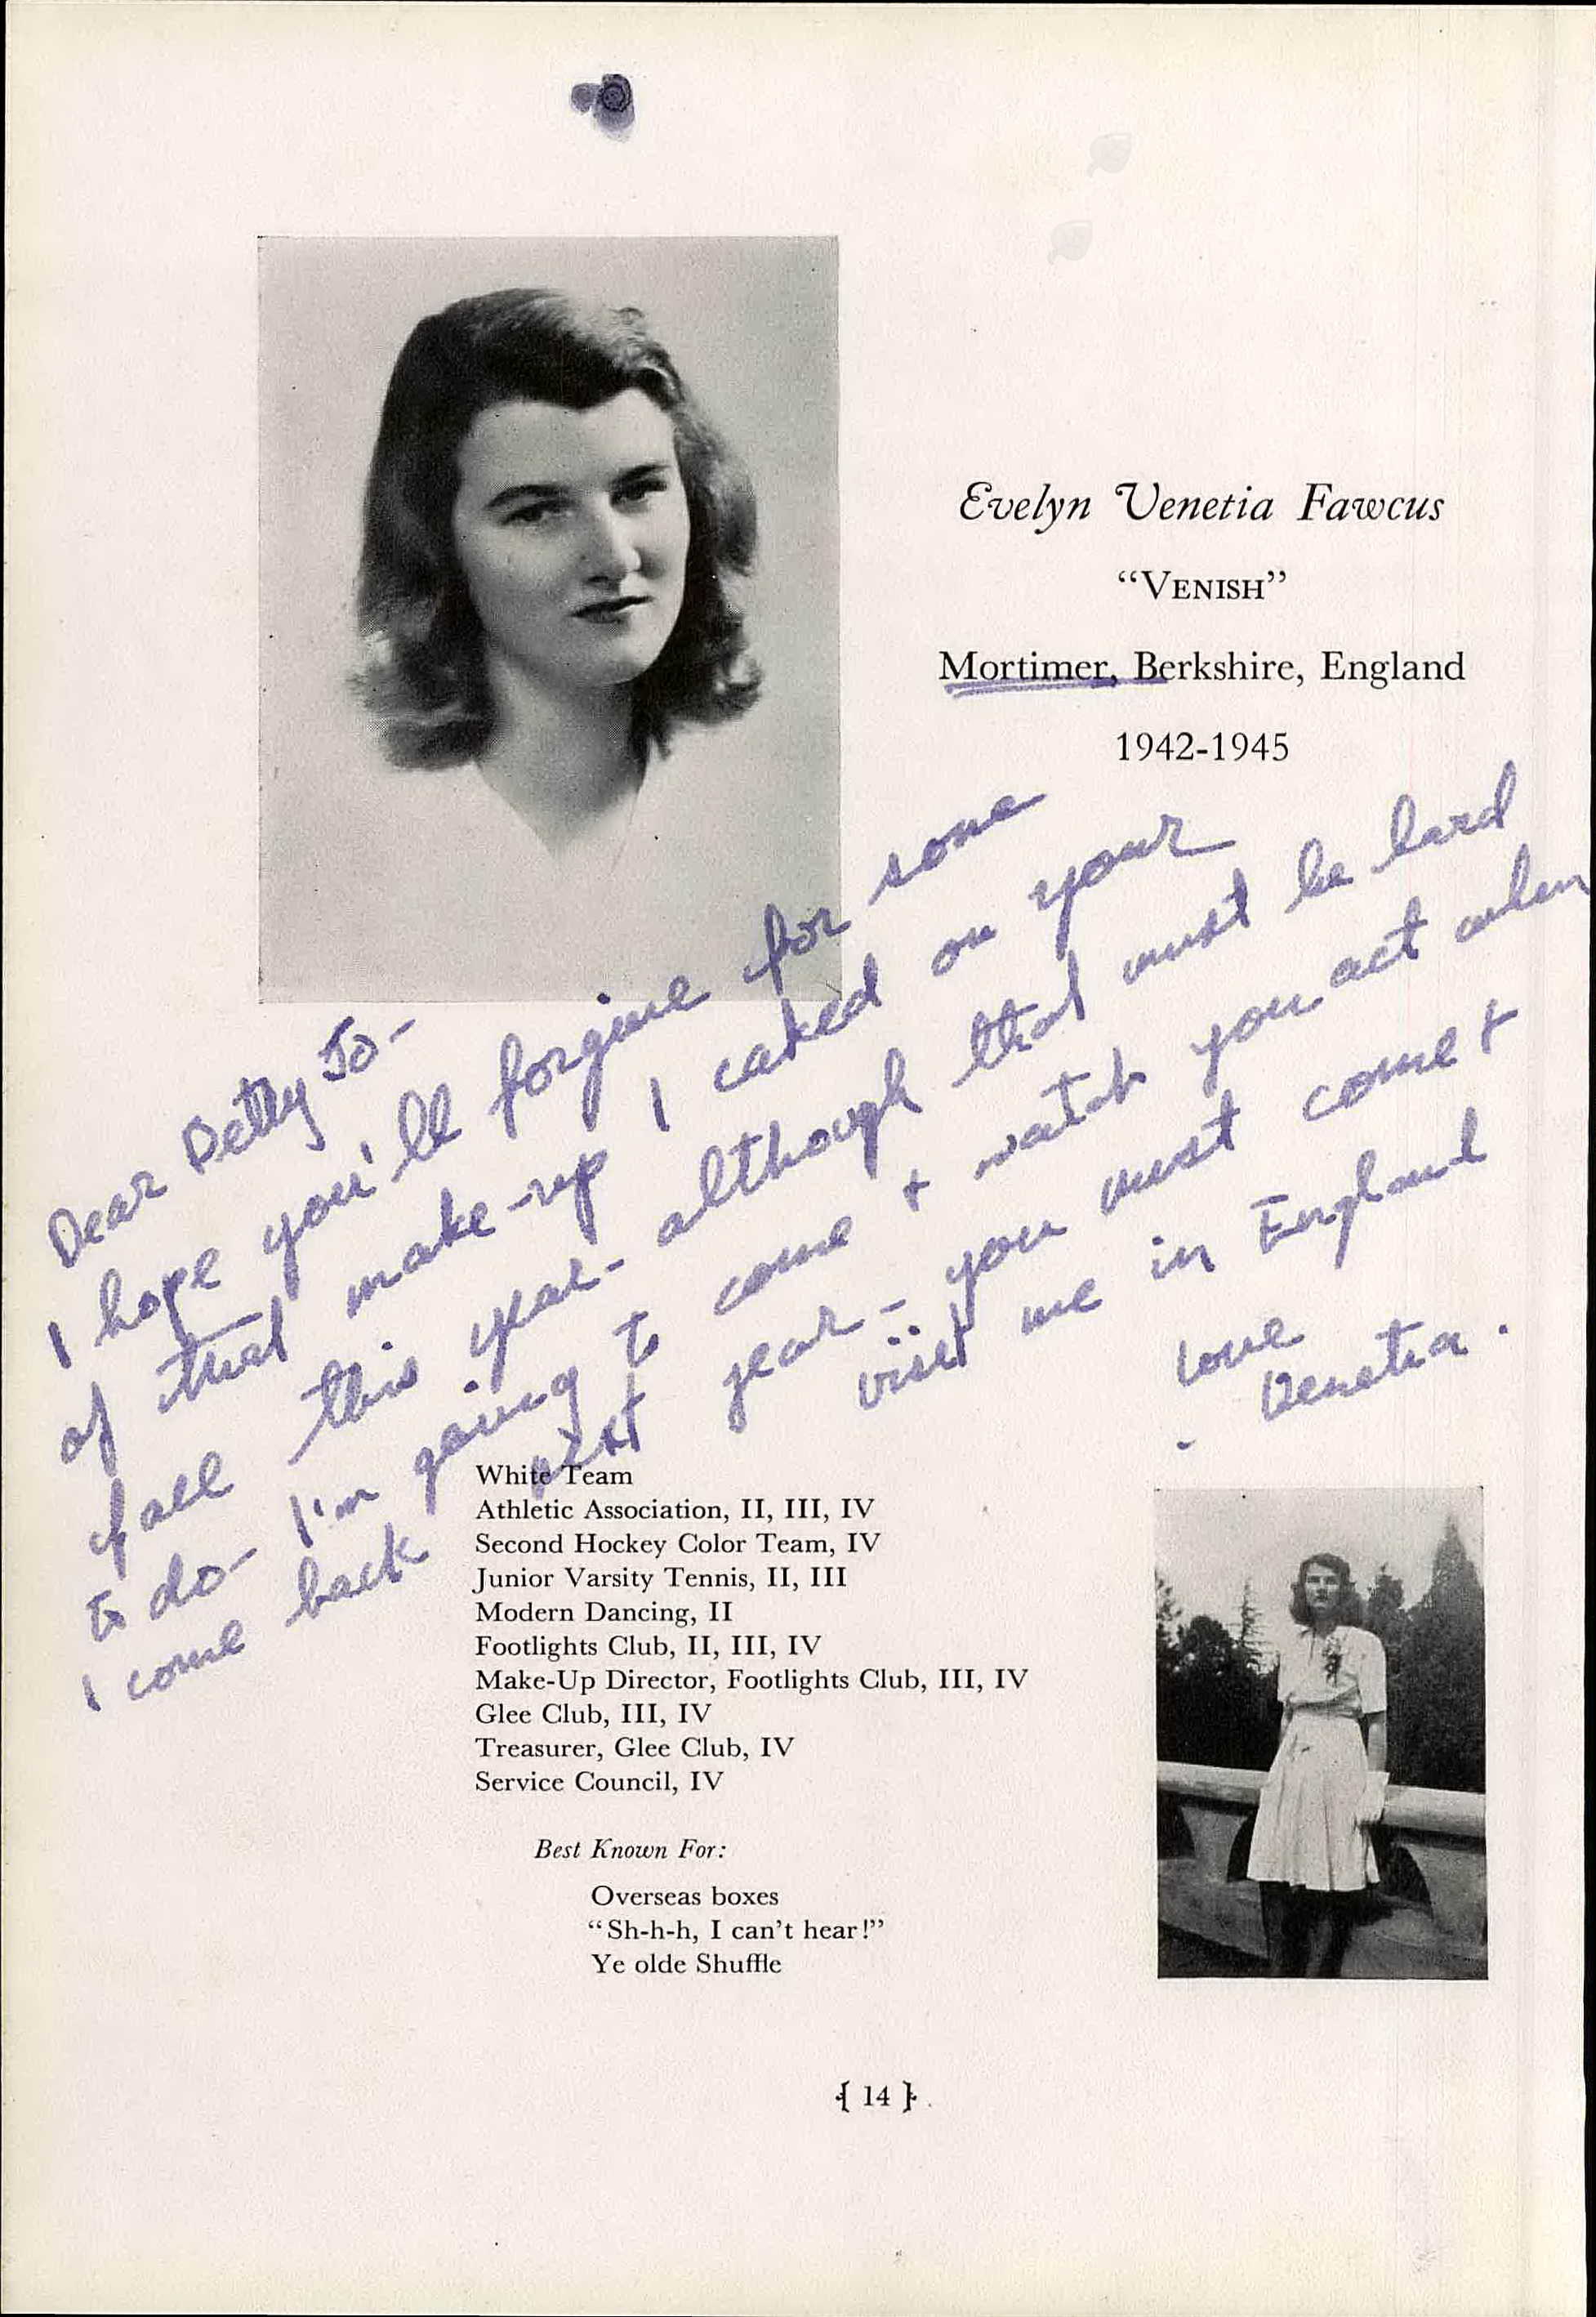 Evelyn Venetia Fawcus
"VENISH"
Mortimer, Berkshire, England
1942-1945
Dear Betty Jo-
I hope you'll forgive for some
of that make-up I caked on your
face this year- although that must be hard
to do- I'm going to come + watch you act when
I come back next year - you must come +
visit me in England
love
Venetia.
White Team
Athletic Association, II, III, IV
Second Hockey Color Team, IV
Junior Varsity Tennis, II, III
Modern Dancing, II
Footlights Club, II, III, IV
Make-Up Director, Footlights Club, III, IV
Glee Club, III, IV
Treasurer, Glee Club, IV
Service Council, IV
Best Known For:
Overseas boxes
"Sh-h-h, I can't hear!"
Ye olde Shuffle
{ 14 }